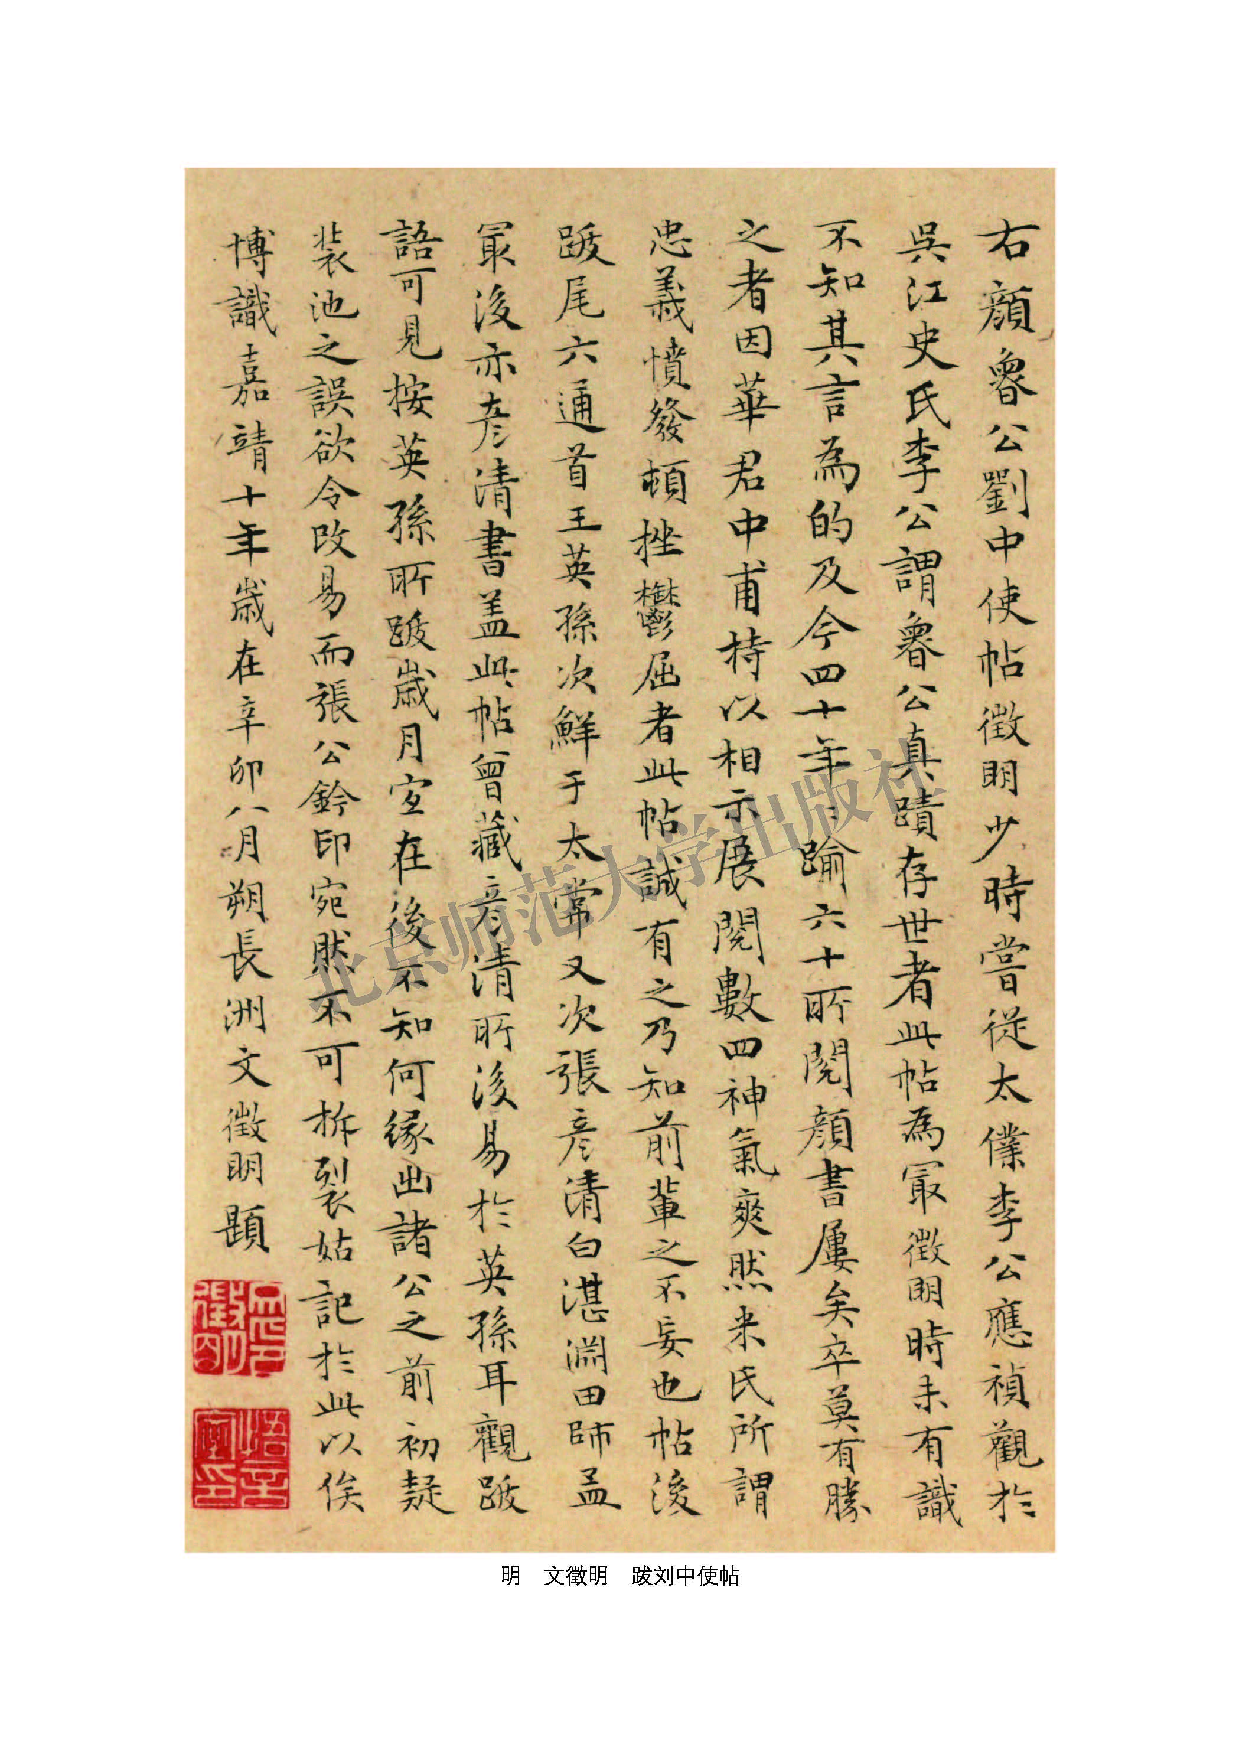 右顏魯公劉中使帖徵明少時嘗從太僕李公應禎觀於
吳江史氏李公謂魯公真蹟存世者此帖為冣徵明時未有識
不知其言為的及今四十年踰六十所閱顏書屢矣卒莫有勝
之者因華君中甫持以相示展閱數四神氣爽然米氏所謂
忠義憤發頓挫鬱屈者此帖誠有之乃知前輩之不妄也帖後
跋尾六通首王英孫次鮮于太常又次張彥清白湛淵田師孟
冣後亦彥清書盖此帖曾藏彥清所後易於英孫耳觀跋
語可見按英孫所跋歲月宜在後不知何緣出諸公之前初疑
裝池之誤欲令改易而張公鈐印宛然不可拆裂姑記於此以俟
博識嘉靖十年歲在辛卯八月朔長洲文徵明題
徵明印
悟言室印
北京师范大学出版社
明 文徵明 跋刘中使帖